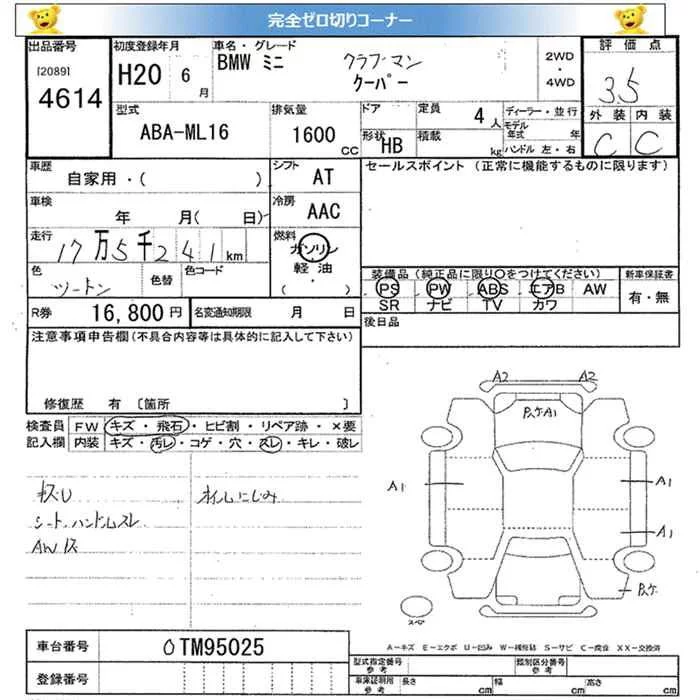 完全ゼロ切りコーナー
出品番号 初度登録年月 車名・グレード 2WD・4WD 評価点
[2089] 4614 H20 6月 BMW ミニ クラブマン クーパー 3.5
型式 ABA-ML16 排気量 1600 CC ドア 形状 HB 定員 4人 積載 kg ディーラー・並行 モデル年式 年 ハンドル 左・右 外装 C 内装 C
車歴 自家用・( ) シフト AT セールスポイント (正常に機能するものに限ります)
車検 年 月( 日) 冷房 AAC
走行 17万5千241km 燃料 ガソリン 軽油 ( ・ )
色 ツートン 色替 色コード 装備品 (純正品に限り〇をつけてください) 新車保証書
PS PW ABS エアB AW 有・無
SR ナビ TV カワ
R券 16,800円 名変通知期限 月 日 後日品
注意事項申告欄 (不具合内容等は具体的に記入して下さい)
修復歴 有 〔箇所 〕
検査員記入欄 FW キズ・飛石・ヒビ割・リペア跡・×要
内装 キズ・汚レ・コゲ・穴・スレ・キレ・破レ
キズU オイルにじみ
シート、ハンドルスレ
AWキズ
A2 A2
A1
A1 A1
A1
スペア
車台番号 0TM95025
登録番号
A-キズ E-エクボ U-凹み W-補修跡 S-サビ C-腐食 XX-交換済
型式指定番号 参考 類別区分番号 参考
車庫証明用 参考 長さ cm 幅 cm 高さ cm